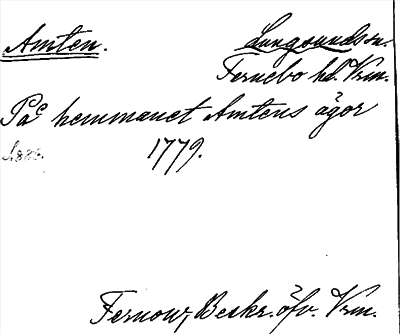 Amten.
Lungsundssn.
Fernebo hd. Vrm.
På hemmanet Amtens ägor
1779.
Fernow, Beskr. öfv. Vrm.